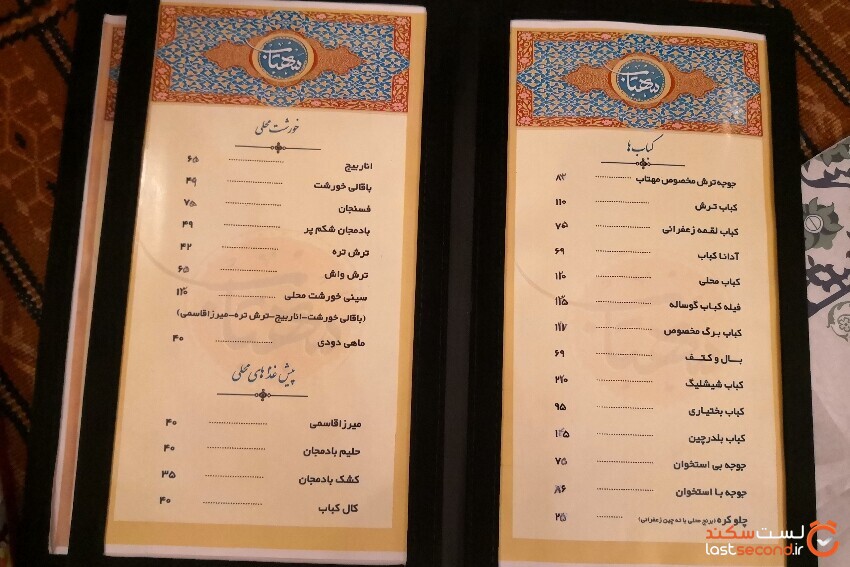 مهتاب
کباب ها
جوجه ترش مخصوص مهتاب ۸۲
کباب ترش ۱۱۰
کباب لقمه زعفرانی ۷۵
آدانا کباب ۶۹
کباب محلی ۱۲۰
فیله کباب گوساله
کباب برگ مخصوص
بال و کتف ۶۹
کباب شیشلیگ
کباب بختیاری ۹۵
کباب بلدرچین
جوجه بی استخوان ۷۵
جوجه با استخوان ۸۶
چلو کره (برنج محلی با ته چین زعفرانی) ۲۵
مهتاب
خورشت محلی
اناربیج ۶۵
باقالی خورشت ۴۹
فسنجان ۷۵
بادمجان شکم پر ۴۹
ترش تره ۴۲
ترش واش ۶۵
سینی خورشت محلی
(باقالی خورشت-اناربیج-ترش تره-میرزاقاسمی)
ماهی دودی ۴۰
پیش غذا های محلی
میرزاقاسمی ۴۰
حلیم بادمجان ۴۰
کشک بادمجان ۳۵
کال کباب ۴۰
لست سکند
lastsecond.ir